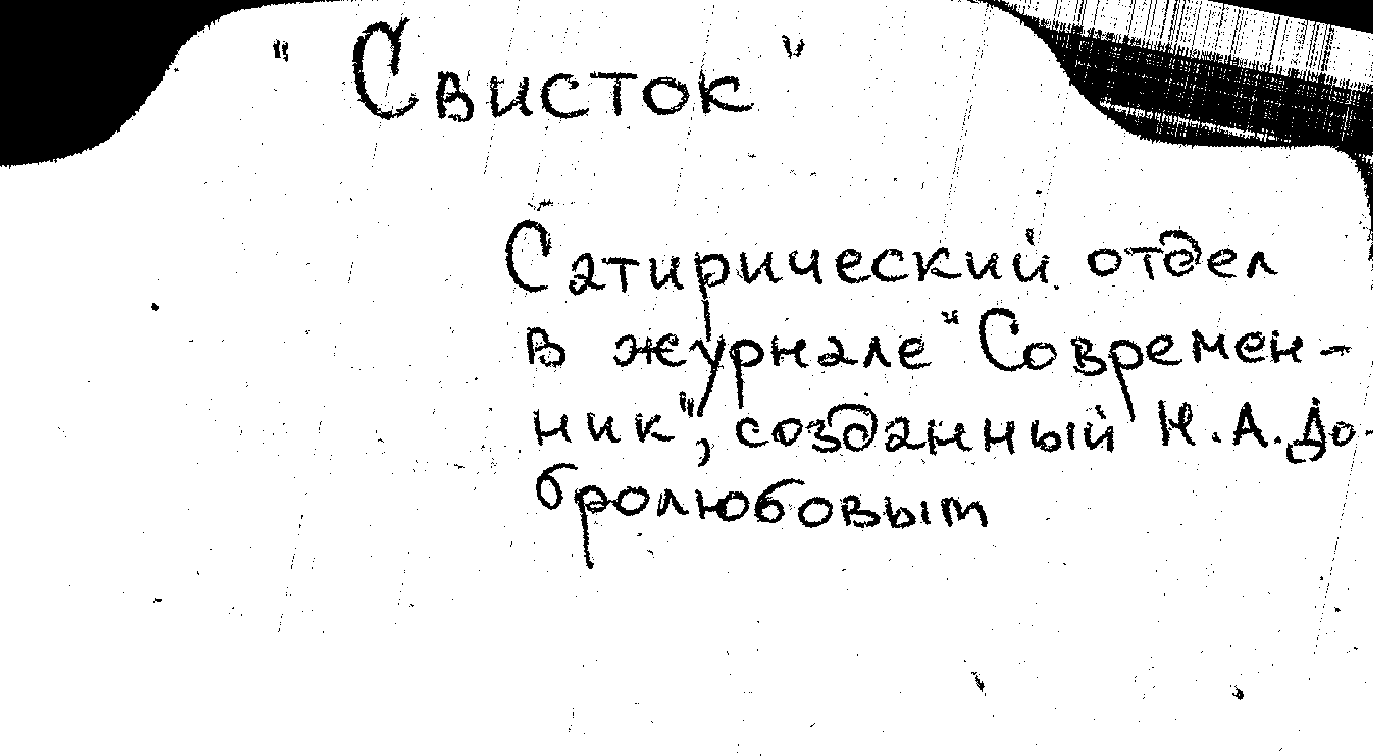 "Свисток"
Сатирический отдел
в журнале "Современ-
ник", созданный Н.А.До-
бролюбовым